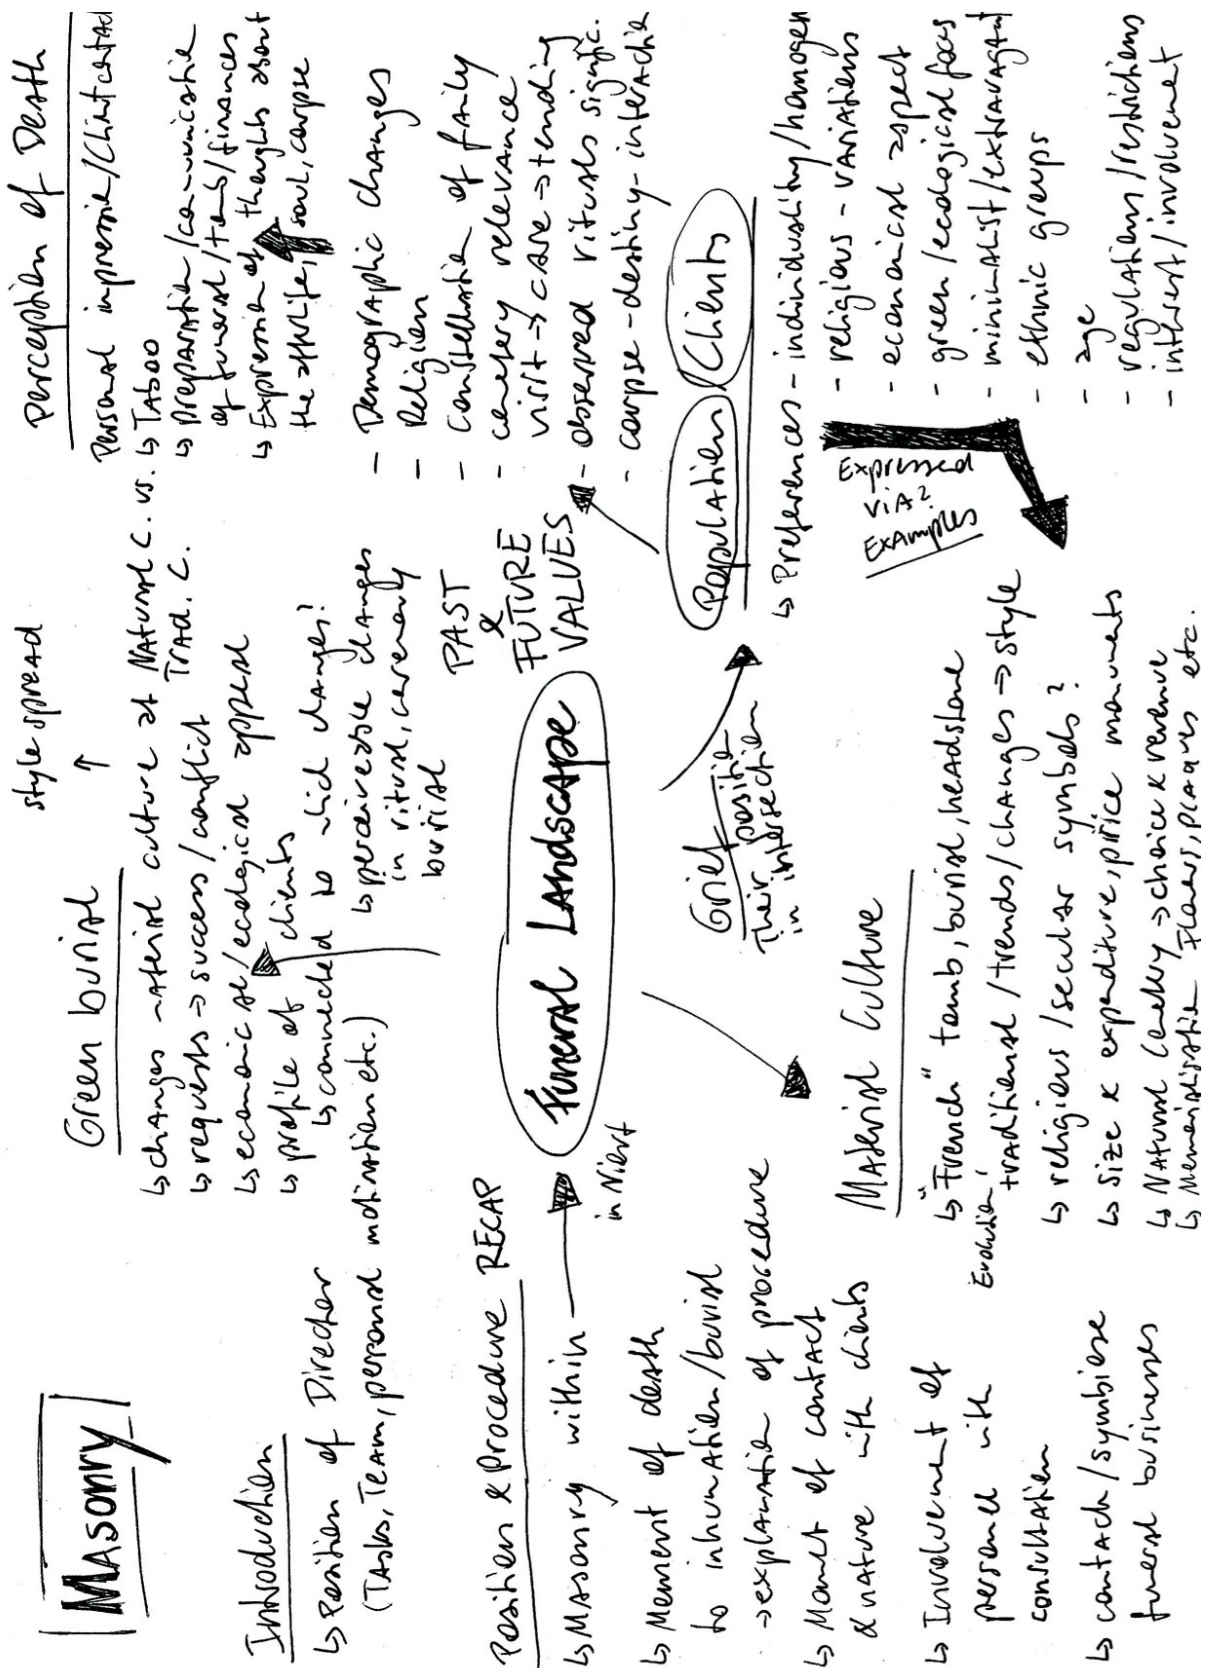 Masonry
Introduction
↳ Position of Director
(Tasks, Team, personal motivation etc.)
Position & Procedure RECAP
↳ Masonry within
↳ Moment of death
to inhumation/burial
→ explanation of procedure
↳ Moment of contact
& nature with clients
↳ Involvement of
personnel with
consultation
↳ contact/symbiose
funeral businesses
style spread
↑
Green burial
↳ changes material culture at Natural C. vs.
Trad. C.
↳ requests → success/conflict
↳ economical/ecological appeal
↳ profile of clients
↳ connected to which changes?
↳ perceiveable changes
in ritual, ceremony
burial
Funeral Landscape
in
PAST
&
FUTURE
VALUES
Grief
Their position
in intersection
Material Culture
↳ "French" tomb, burial, headstone
Evolution!
traditional/trends/changes → style
↳ religious/secular symbols?
↳ Size & expenditure, price monuments
↳ Natural Cemetery → choice & revenue
↳ Memorialisation Flowers, plaques etc.
Perception of Death
Personal impression/Client contact
↳ Taboo
↳ preparation/communication
of funeral/tomb/finances
↳ Expression of thoughts about
the afterlife, soul, corpse
- Demographic changes
- Religion
- constellation of family
- cemetery relevance
visit → care → tending
- observed rituals signific.
- corpse-destiny-interaction
Population/Clients
↳ Preferences - individuality/homogen
- religious - variations
- economical aspect
- green/ecological focus
- minimalist/extravagant
- ethnic groups
- age
- regulations/restrictions
- interest/involvement
Expressed
via?
Examples